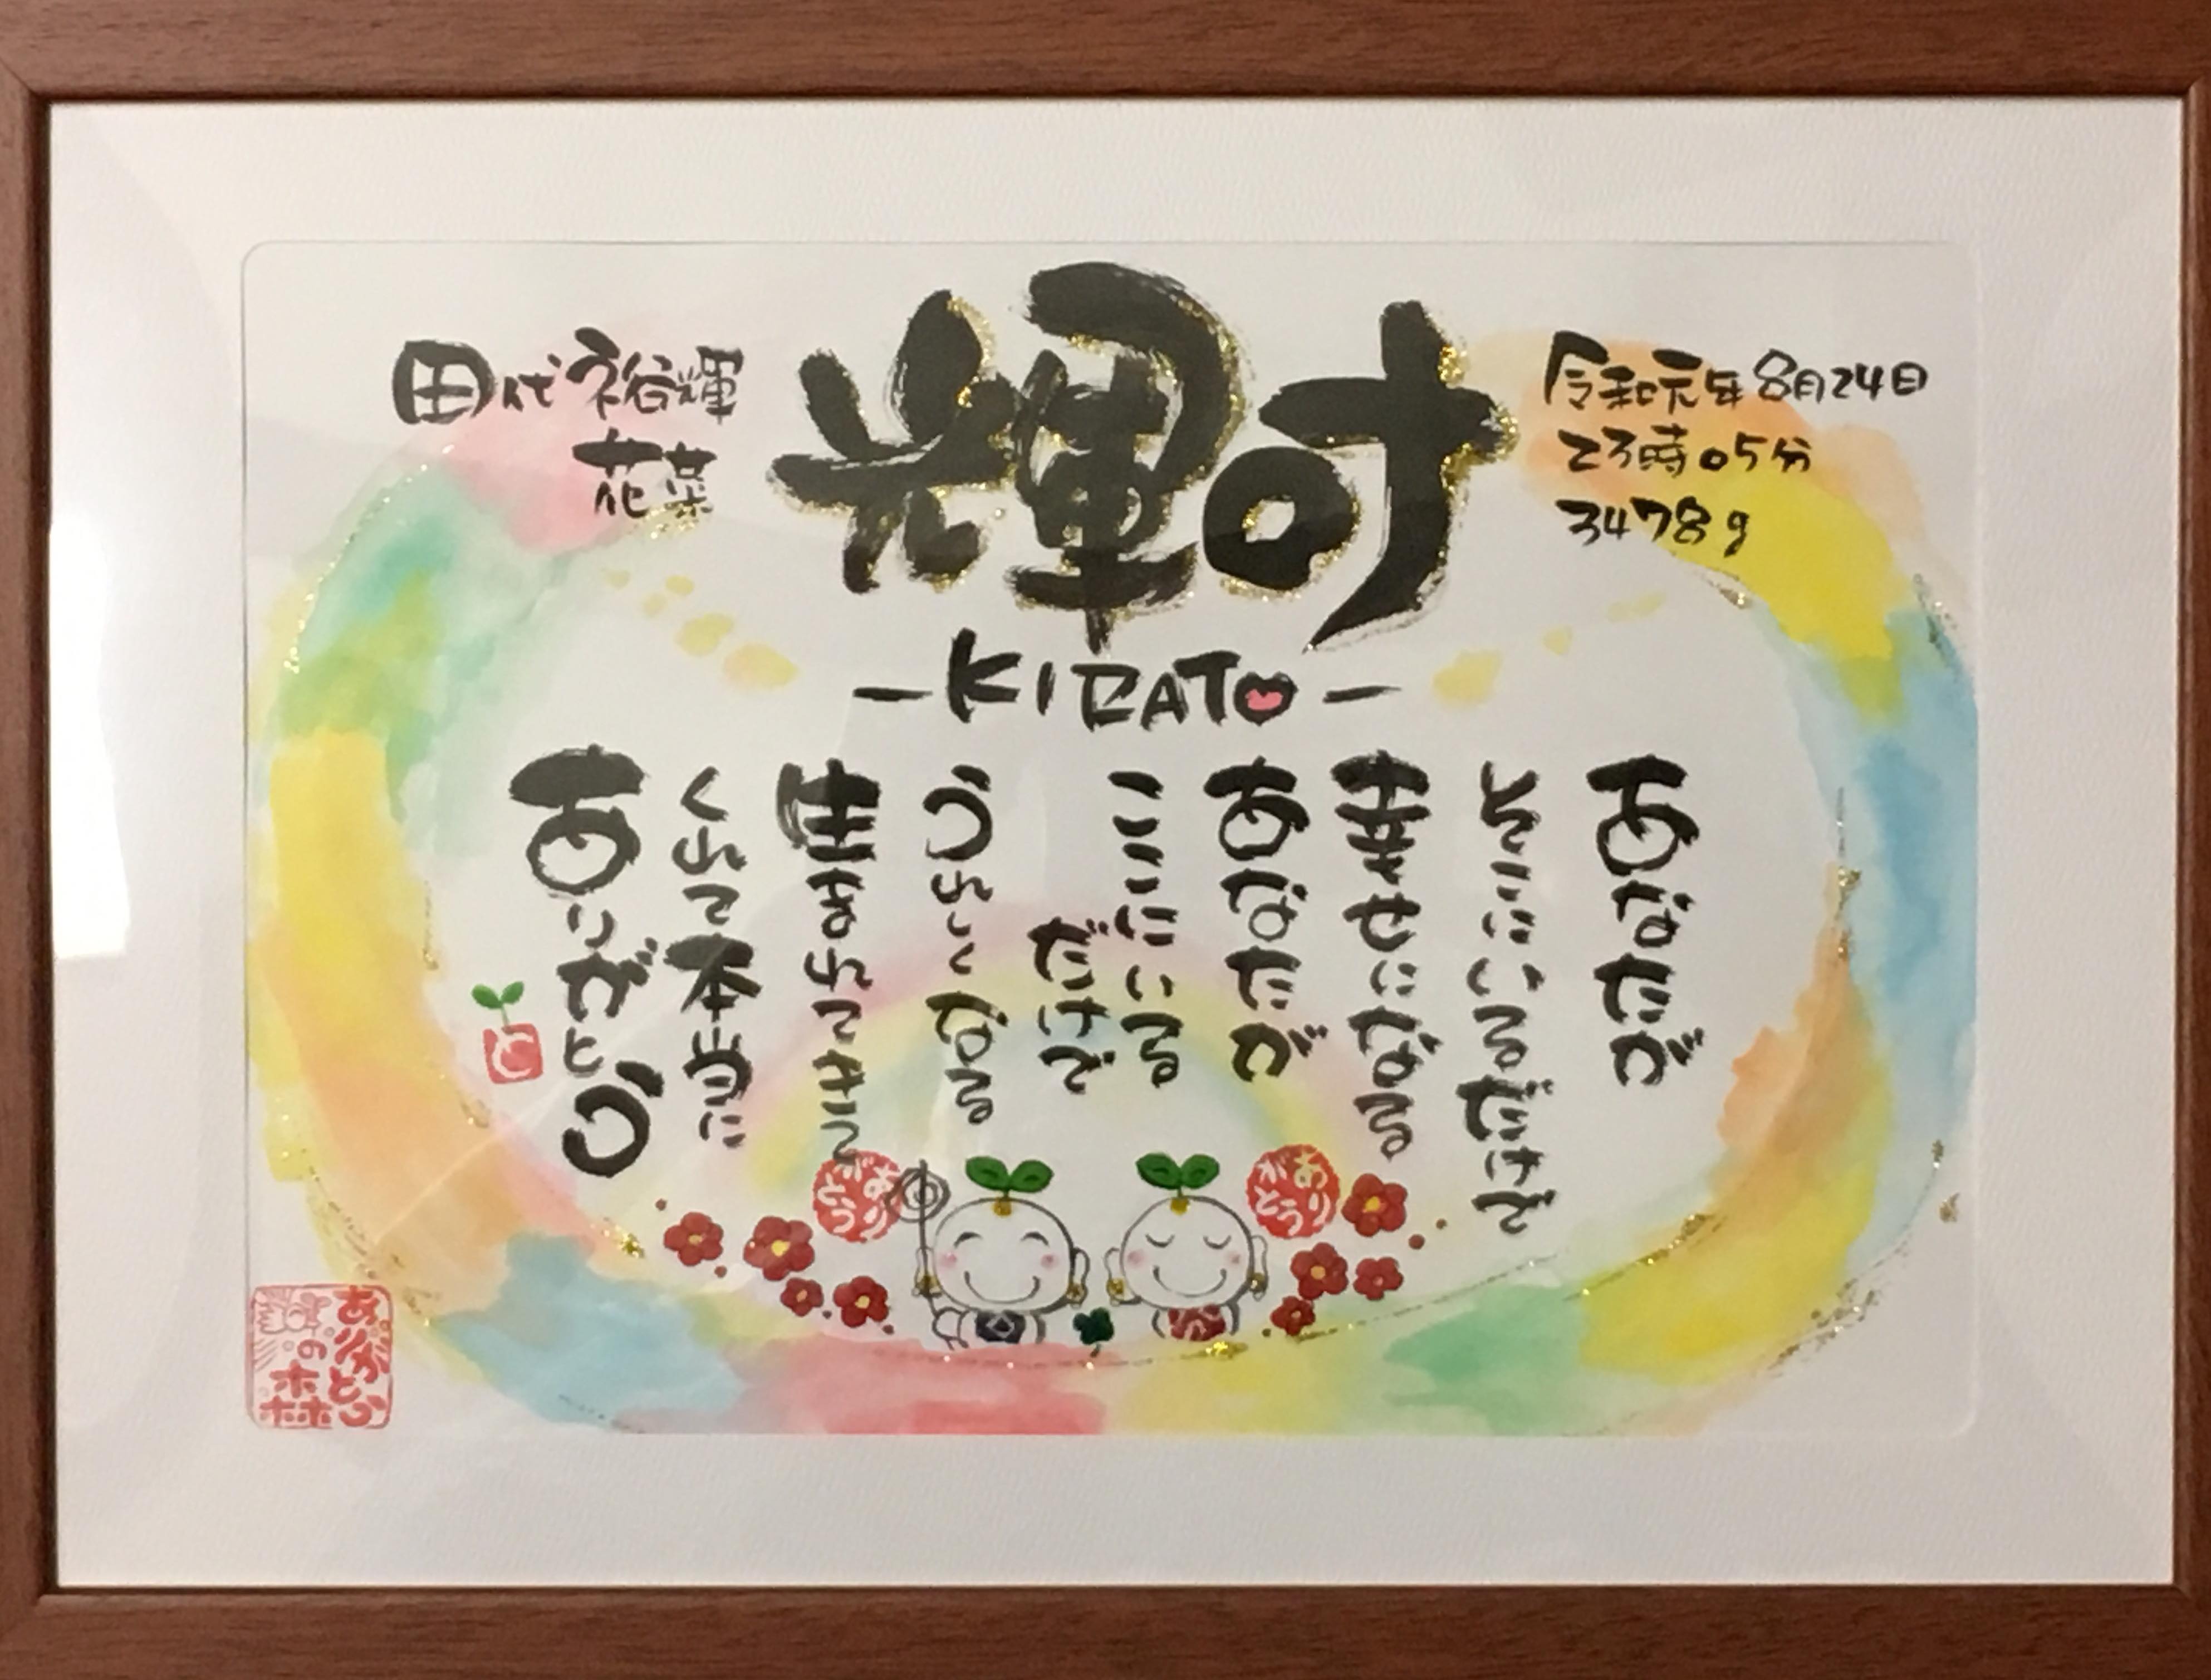 輝叶
-KIRATO-
令和元年8月24日
23時05分
3478g
田代裕輝
花菜
あなたが
そこにいるだけで
幸せになる
あなたが
ここにいる
だけで
うれしくなる
生まれてきて
くれて本当に
ありがとう
ありがとう
ありがとう
ありがとう
の森